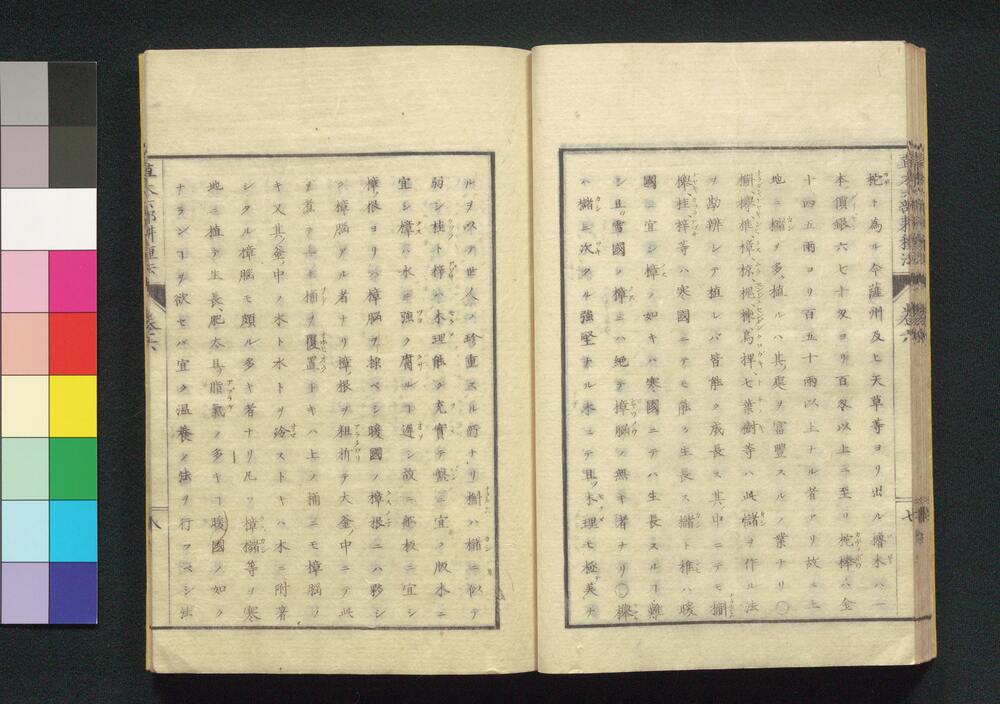 草木六部耕種法 卷六 七
柁ト為ル今薩州及ヒ天草等ヨリ出ル櫓木ハ一
本價銀六七十匁ヨリ百匁以上ニ至リ柁棒ハ金
十四五兩ヨリ百五十兩以上ナル者アリ故ニ土
地ニ櫧ヲ多ク植ルハ其裏ヲ富豐スルノ業ナリ〇
槲、櫸、椎、樟、椋、楒、楝、烏桕、七葉樹等ハ此櫧ヲ作ル法
ヲ勘辨シテ植レバ皆能ク成長ス其中ニテモ槲
櫸、桂、梓等ハ寒國ニテモ能ク生長ス櫧ト椎ハ暖
國ニ宜シ樟ノ如キハ寒國ニテハ生長スルヿ難
シ且雪國ノ樟ニハ絶テ樟腦ノ無キ者ナリ〇櫸
ハ櫧ニ次タル強堅ナル木ニテ且木理モ極美ナ
ルヲ以テ世人ノ珍重スル所ナリ槲ハ櫧ニ似テ
弱シ桂ト梓ハ木理能ク充實テ繄ニ宜ク版木ニ
宜シ樟ハ水ニ強ク腐ルヿ遲シ故ニ船板ニ宜シ
樟ノ根ヨリハ樟腦ヲ採ベシ暖國ノ樟根ニハ夥シ
ク樟腦アル者ナリ樟根ヲ粗折テ大釜ノ中ニテ此
ヲ蒸テ上ニ桶ヲ覆置トキハ上ノ桶ニモ樟腦ノ
キ又其釜ノ中ノ木ト水トヲ冷ストキハ木ニ附著
シタル樟腦モ頗ル多キ者ナリ凡ソ樟櫧等ヲ寒
地ニ植テ生長肥太且ツ脂氣ノ多キヿ暖國ノ如ク
ナランヿヲ欲セバ宜ク温養ノ法ヲ行フベシ法
草木六部耕種法 卷六 八